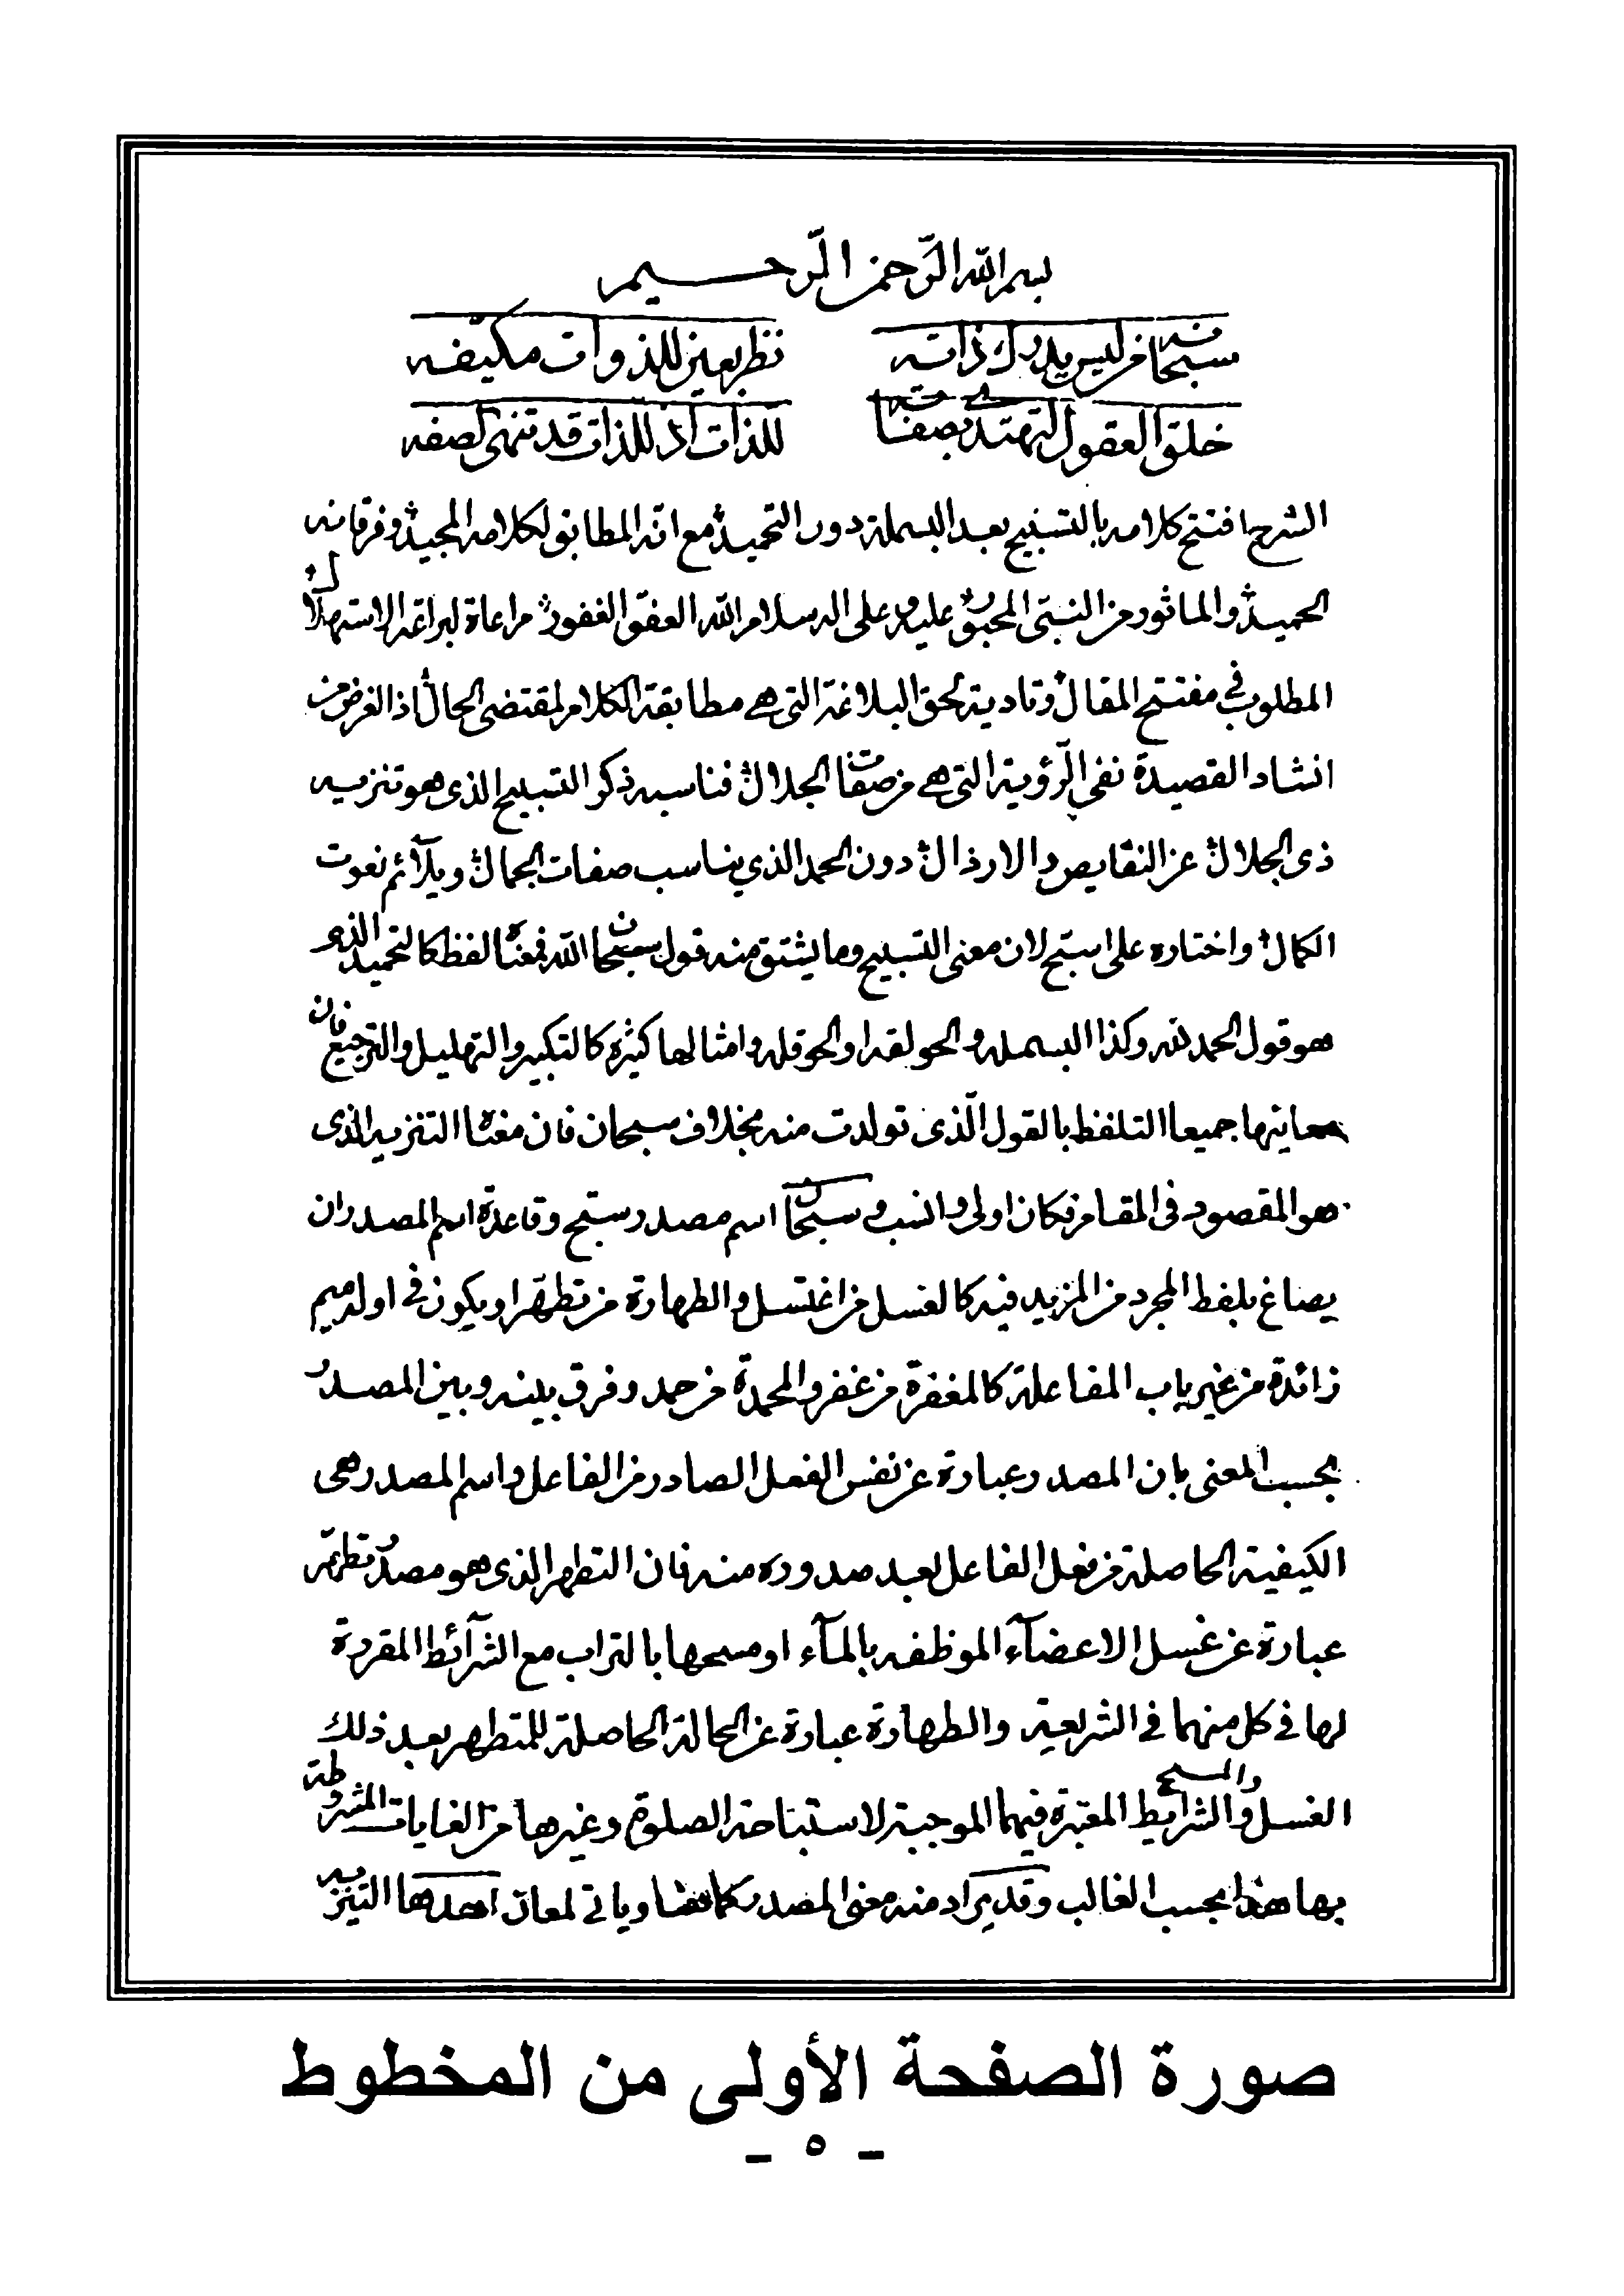 بسم الله الرّحمن الرّحيم
سبحانه من ليس يدرك ذاته نظر بعين للذوات مكيفه
خلق العقول لتهتدي بصفاته للذات اذ للذات قد تنهى لصفه
الشرح افتتح كلامه بالتسبيح بعد البسملة دون التحميد مع انّه المطابق لكلامه المجيد وفرقانه
الحميد والماثور من النبىّ المحبوّ عليه وعلى اله سلام الله العفوّ الغفور مراعاة لبراعة الاستهلال
المطلوب في مفتتح المقال وتادية لحق البلاغة التى هى مطابقة الكلام لمقتضى الحال اذ الغرض من
انشاد القصيدة نفى الرّؤية التى هى من صفات الجلال فناسبه ذكر التسبيح الذى هو تنزيه
ذى الجلال عن النقايص والارذال دون الحمد الذي يناسب صفات الجمال ويلآئم نعوت
الكمال واختاره على اسبّح لان معنى التسبيح وما يشتق منه قول سبحان الله فمعناه لفظ كالتحميد الذى
هو قول الحمد لله وكذا البسمله والحولقه او الحوقله وامثالها كثيرة كالتكبير والتهليل والترجيع فان
معانيها جميعا التلفظ بالقول الّذى تولدت منه بخلاف سبحان فان معناه التنزيه الذى
هو المقصود فى المقام فكان اولى وانسب وسبحان اسم مصدر سبّح وقاعدة اسم المصدر ان
يصاغ بلفظ المجرد من المزيد فيه كالغسل من اغتسل والطهارة من تطهّر او يكون في اوله ميم
زائدة من غير باب المفاعلة كالمغفرة من غفر والمحمدة من حمد وفرق بينه وبين المصدر
بحسب المعنى بان المصدر عبارة عن نفس الفعل الصادر من الفاعل واسم المصدر هى
الكيفية الحاصلة من فعل الفاعل بعد صدوره منه فان التطهر الذى هو مصدر تطهّر
عبارة عن غسل الاعضآء الموظفه بالمآء او مسحها بالتراب مع الشرآئط المقررة
لها في كل منهما في الشريعة والطهارة عبارة عن الحالة الحاصلة للمتطهر بعد ذلك
الغسل والمسح والشرايط المعتبرة فيهما الموجبة لاستباحة الصلوة وغيرها من الغايات المشروطة
بها هذا بحسب الغالب وقد يراد منه معنى المصدر كما هنا وياتي لمعان احدها التنزيه
صورة الصفحة الأولى من المخطوط
- ٥ -